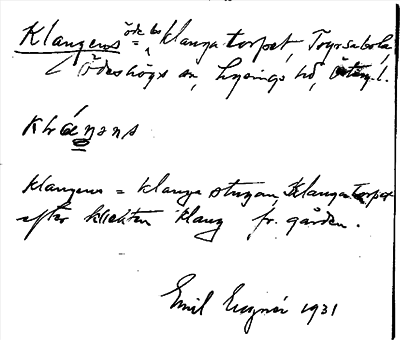 Klangens = öde bs Klangatorpet, Toyrsabola
Ödeshögs sn, Lysings hd, Östergl.
Klåŋens
Klangens = Klangastugan, Klangatorpet
efter knekten Klang fr. gården.
Emil 1931